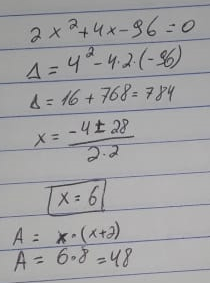 2x²+4x-96=0
Δ=4²-4.2.(-96)
Δ=16+768=784
x=-4±28/2.2
x=6
A= x.(x+2)
A= 6.8=48